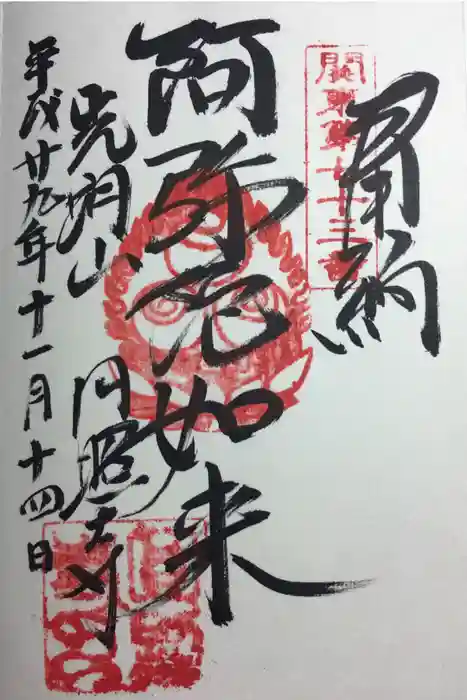 奉納
関東第七十三番
阿弥陀如来
光明山
円照寺
平成廿九年十一月十四日